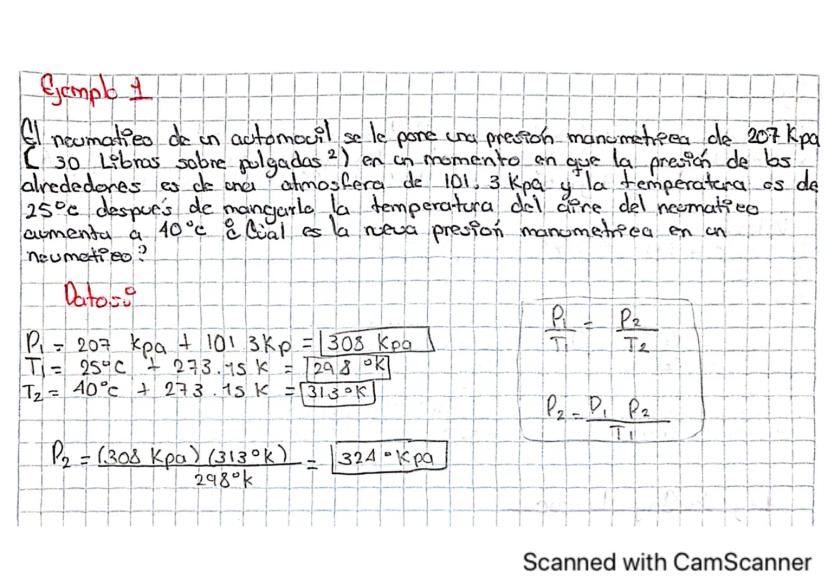 Ejemplo 1
El neumatico de un automovil se le pone una presión manometrica de 207 Kpa
( 30 Libras sobre pulgadas ²) en un momento en que la presión de los
alrededores es de una atmosfera de 101.3 Kpa y la temperatura es de
25°c despues de manejarlo la temperatura del aire del neumatico
aumenta a 40°c ¿Cúal es la nueva presión manometrica en un
neumatico?
Datos:
P₁ = 207 Kpa + 101 3Kp = 308 Kpa
T₁ = 25°C + 273.15 K = 298 °K
T₂ = 40°c + 273.15 K = 313°K
P₁/T₁ = P₂/T₂
P₂ = P₁ P₂/T₁
P₂ = (308 Kpa) (313°K)/298°k = 324°Kpa
Scanned with CamScanner